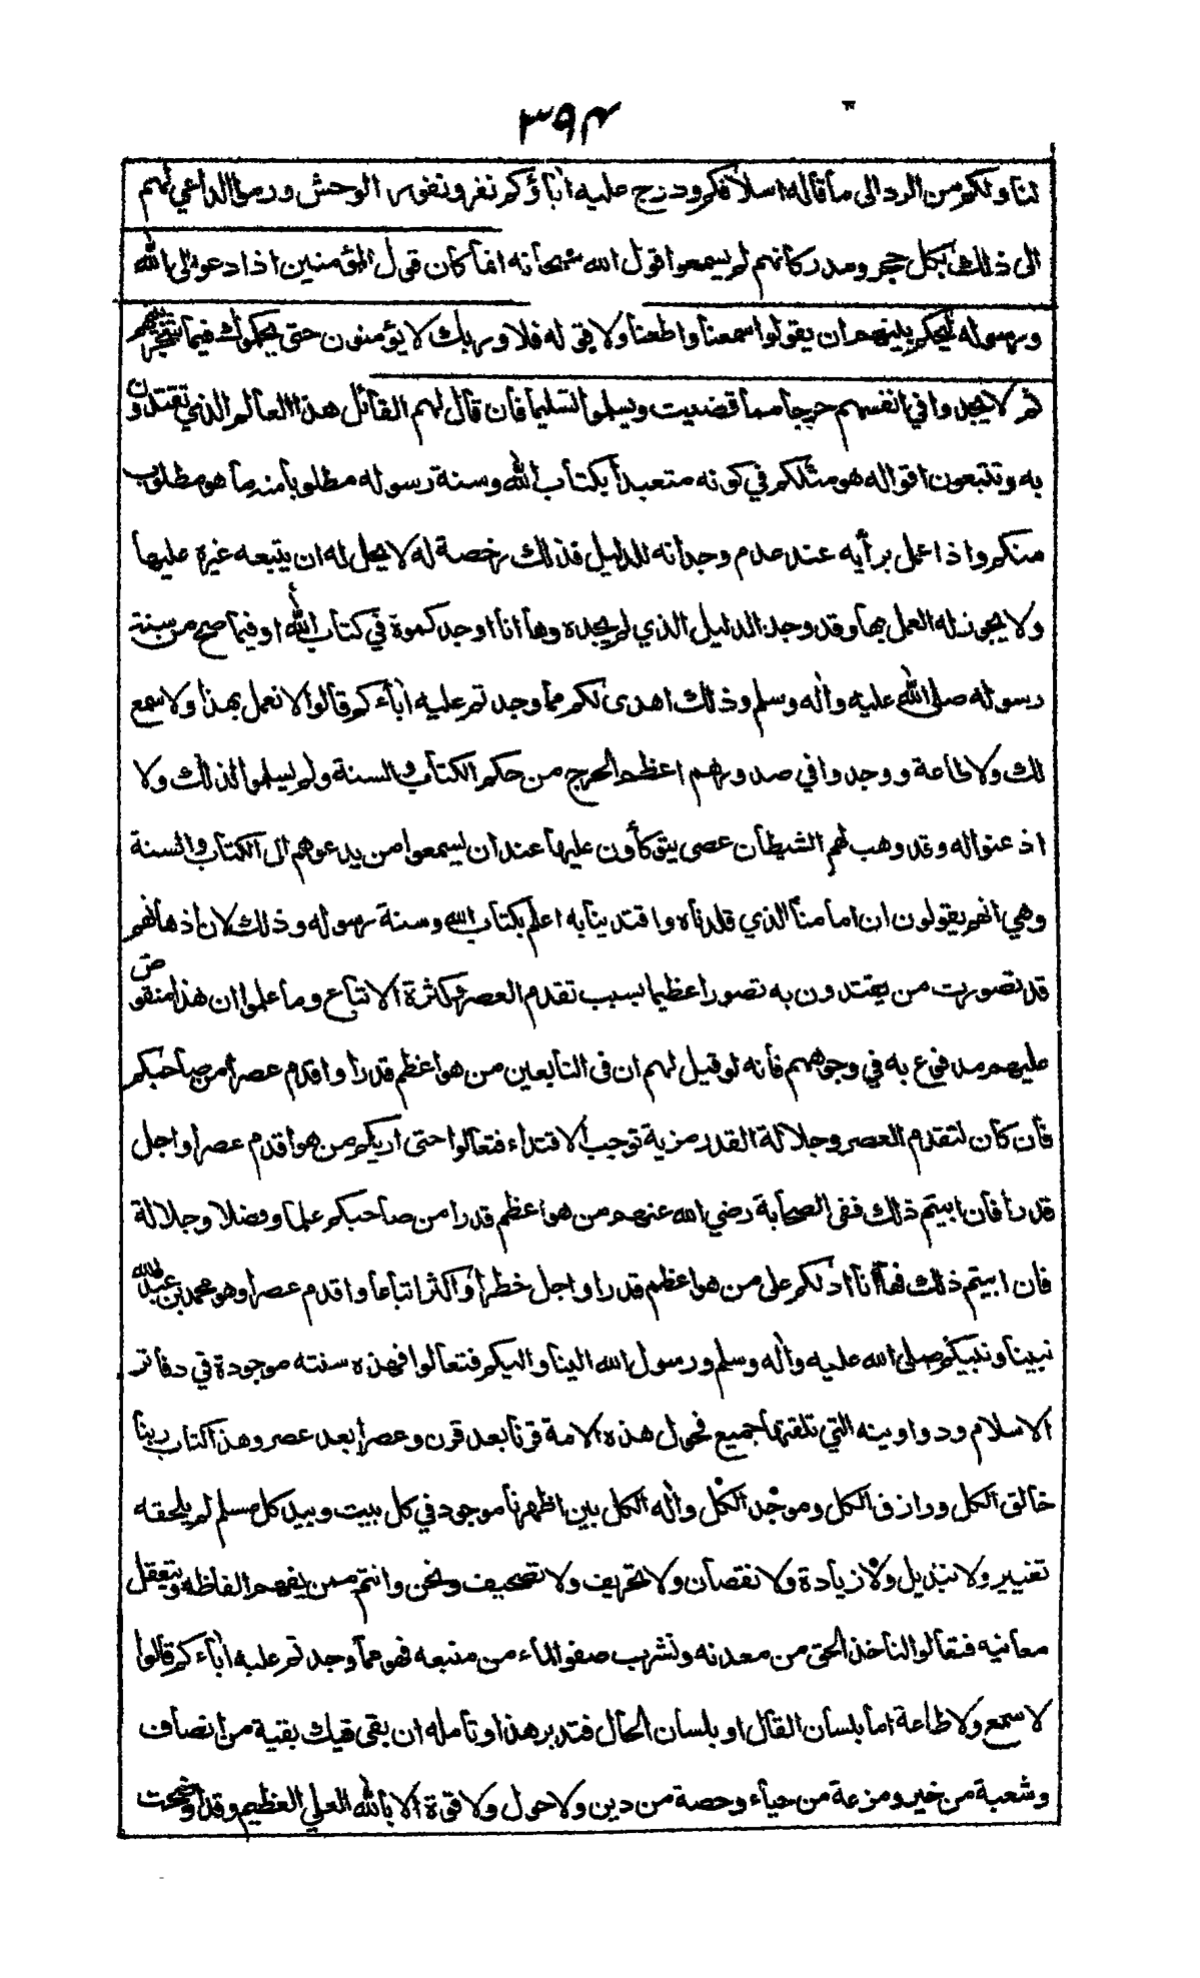 ٣٩٤
لنا ولكم من الرد الى ما قاله اسلافكم ودرج عليه آباؤكم نفروا نفور الوحش ورموا الداعي لهم
الى ذلك بكل حجر ومدر كانهم لم يسمعوا قول الله سبحانه انما كان قول المؤمنين اذا دعوا الى الله
ورسوله ليحكم بينهم ان يقولوا سمعنا واطعنا ولا قوله فلا وربك لا يؤمنون حتى يحكموك فيما شجر بينهم
ثم لا يجدوا في انفسهم حرجا مما قضيت ويسلموا تسليما فان قال لهم القائل هذا العالم الذي تقتدون
به وتتبعون اقواله هو مثلكم في كونه متعبدا بكتاب الله وسنة رسوله مطلوبا منه ما هو مطلوب
منكم واذا عمل برأيه عند عدم وجدانه للدليل فذلك رخصة له لا يحل له ان يتبعه غيره عليها
ولا يجوز له العمل بها وقد وجد الدليل الذي لم يجده وها انا اوجدكموه في كتاب الله او فيما صح من سنة
رسوله صلى الله عليه وآله وسلم وذلك اهدى لكم مما وجدتم عليه آباءكم قالوا لا نعمل بهذا ولا سمع
لك ولا طاعة ووجدوا في صدورهم اعظم الحرج من حكم الكتاب والسنة ولم يسلموا لذلك ولا
اذعنوا له وقد وهب لهم الشيطان عصى يتوكأون عليها عند ان يسمعوا من يدعوهم الى الكتاب والسنة
وهي انهم يقولون ان امامنا الذي قلدناه واقتدينا به اعلم بكتاب الله وسنة رسوله وذلك لان اذهانهم
قد تصورت من يقتدون به تصورا عظيما بسبب تقدم العصر وكثرة الاتباع وما علموا ان هذا منقوض
عليهم مدفوع به في وجوههم فانه لو قيل لهم ان في التابعين من هو اعظم قدرا واقدم عصرا من صاحبكم
فان كان لتقدم العصر وجلالة القدر مزية توجب الاقتداء فتعالوا حتى اريكم من هو اقدم عصرا واجل
قدرا فان ابيتم ذلك ففى الصحابة رضي الله عنهم من هو اعظم قدرا من صاحبكم علما وفضلا وجلالة
فان ابيتم ذلك فها انا ادلكم على من هو اعظم قدرا واجل خطرا واكثر اتباعا واقدم عصرا وهو محمد بن عبد الله
نبينا ونبيكم صلى الله عليه وآله وسلم ورسول الله الينا واليكم فتعالوا فهذه سنته موجودة في دفاتر
الاسلام ودواوينه التي تلقتها جميع فحول هذه الامة قرنا بعد قرن وعصرا بعد عصر وهذا كتاب ربنا
خالق الكل ورازق الكل وموجد الكل وآله الكل بين اظهرنا موجود في كل بيت وبيد كل مسلم لم يلحقه
تغيير ولا تبديل ولا زيادة ولا نقصان ولا تحريف ولا تصحيف ونحن وانتم ممن يفهم الفاظه ويتعقل
معانيه فتعالوا لنأخذ الحق من معدنه ونشرب صفو الماء من منبعه فهو مما وجدتم عليه آباءكم قالوا
لا سمع ولا طاعة اما بلسان القال او بلسان الحال فتدبر هذا وتأمله ان بقى فيك بقية من انصاف
وشعبة من خير ومزعة من حياء وحصة من دين ولا حول ولا قوة الا بالله العلي العظيم وقد اوضحت